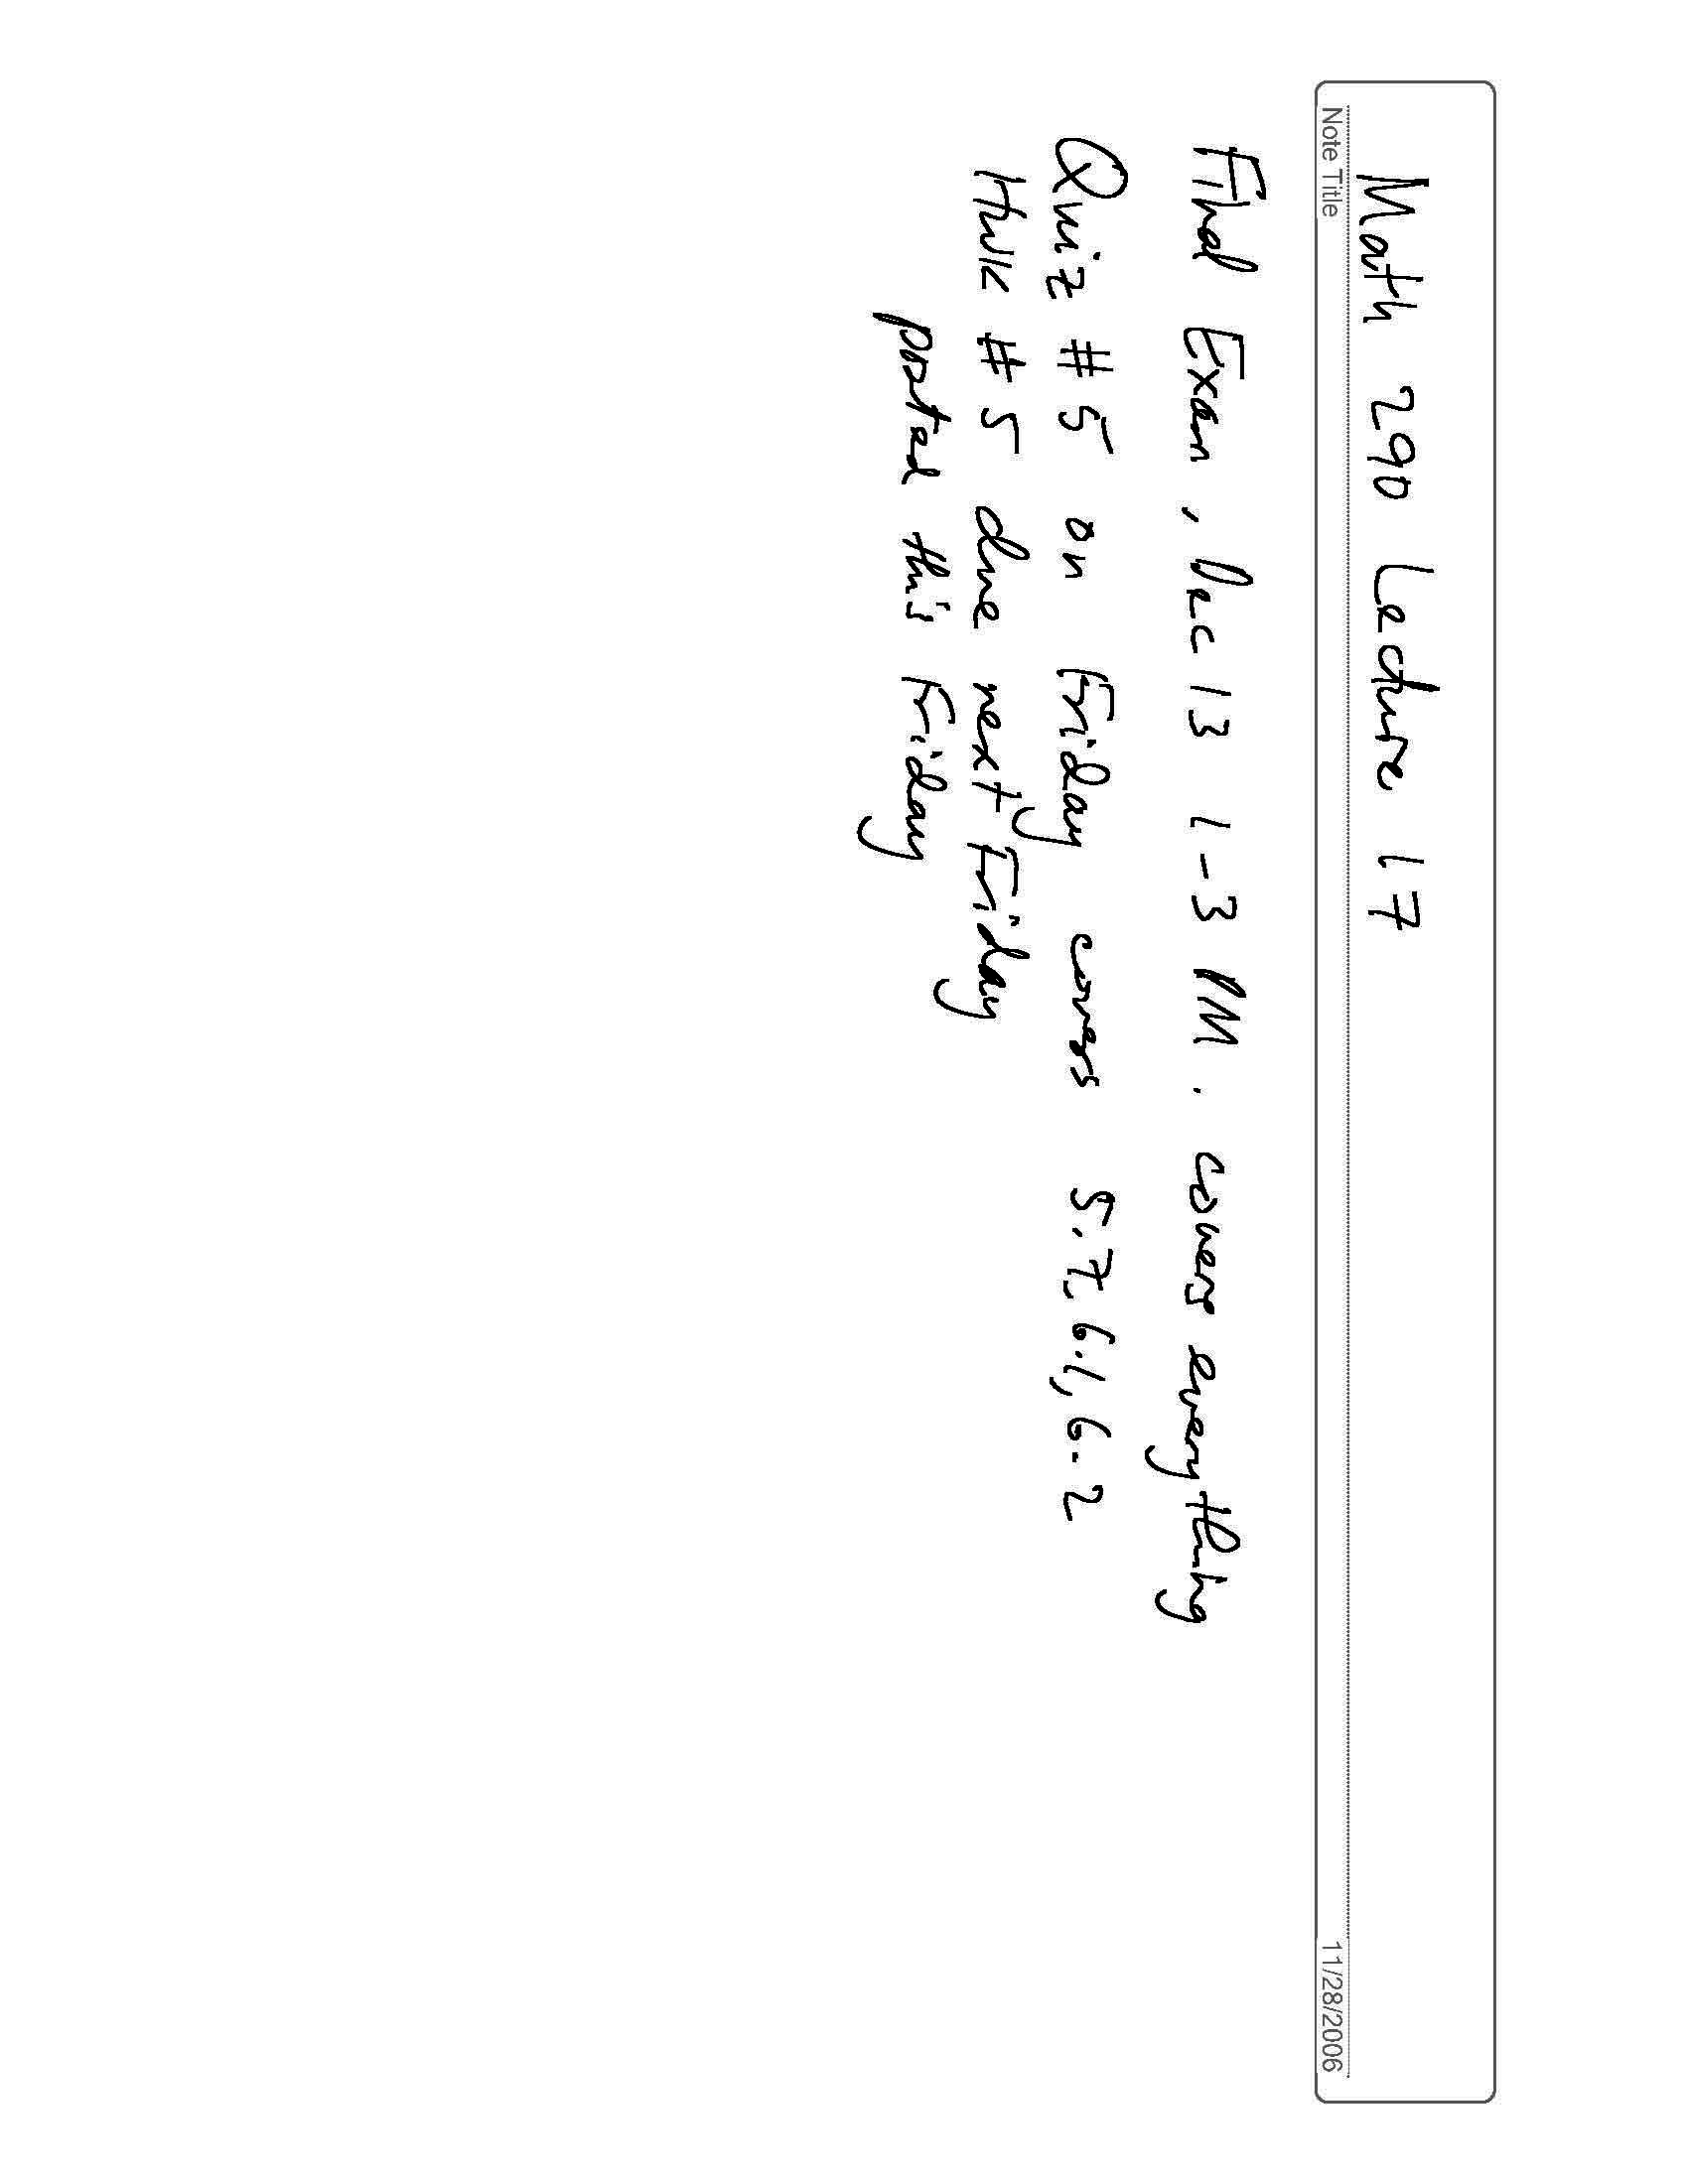 Math 290 Lecture 17
Note Title
11/28/2006
Final Exam, Dec 13 1-3 PM. covers everything
Quiz #5 on Friday covers 5.7, 6.1, 6.2
Hwk #5 due next Friday
posted this Friday